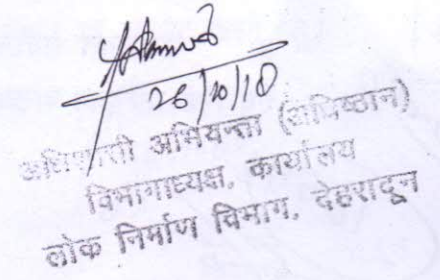 26/10/18
अधिशासी अभियन्ता (अधिष्ठान)
विभागाध्यक्ष, कार्यालय
लोक निर्माण विभाग, देहरादून